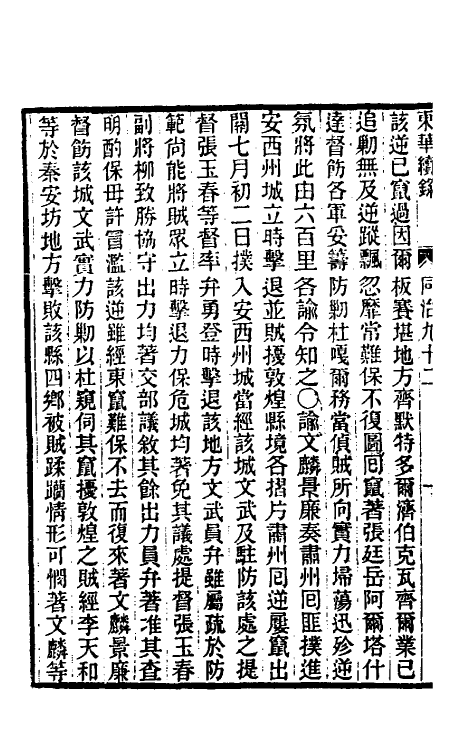 東華續錄 同治九十二
該逆已竄過因爾板賽堪地方齊默特多爾濟伯克瓦齊爾業已
追勦無及逆蹤飄忽靡常難保不復圖囘竄著張廷岳阿爾塔什
達督飭各軍妥籌防勦杜嘎爾務當偵賊所向實力埽蕩迅殄逆
氛將此由六百里各諭令知之〇諭文麟景廉奏肅州囘匪撲進
安西州城立時擊退並賊擾敦煌縣境各摺片肅州囘逆屢竄出
關七月初二日撲入安西州城當經該城文武及駐防該處之提
督張玉春等督率弁勇登時擊退該地方文武員弁雖屬疏於防
範尚能將賊眾立時擊退力保危城均著免其議處提督張玉春
副將柳致勝協守出力均著交部議敘其餘出力員弁著准其查
明酌保毋許冒濫該逆雖經東竄難保不去而復來著文麟景廉
督飭該城文武實力防勦以杜窺伺其竄擾敦煌之賊經李天和
等於秦安坊地方擊敗該縣四鄉被賊蹂躪情形可憫著文麟等